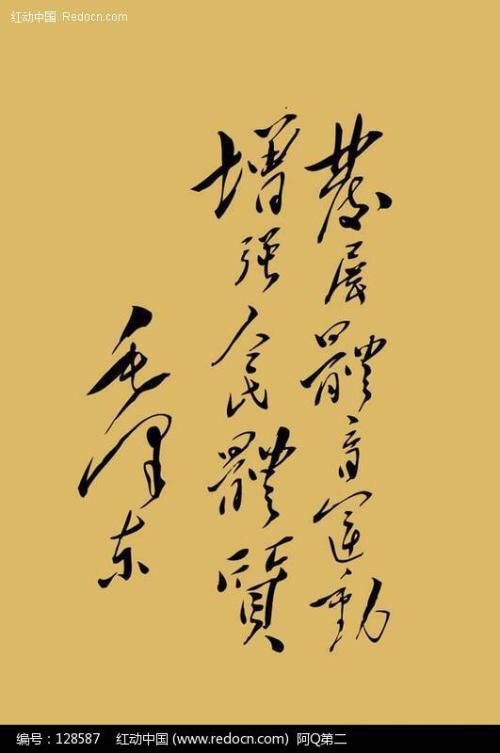 红动中国 Redocn.com
發展體育運動
增强人民體質
毛泽东
编号：128587 红动中国 (www.redocn.com) 阿Q第二